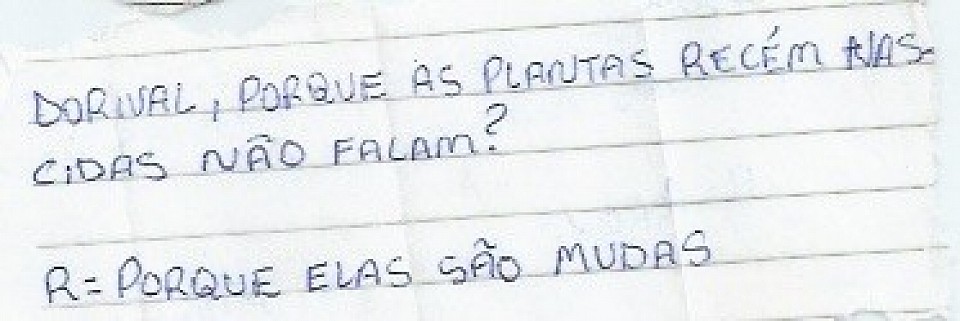 DORIVAL, PORQUE AS PLANTAS RECÉM NAS-
CIDAS NÃO FALAM?
R= PORQUE ELAS SÃO MUDAS